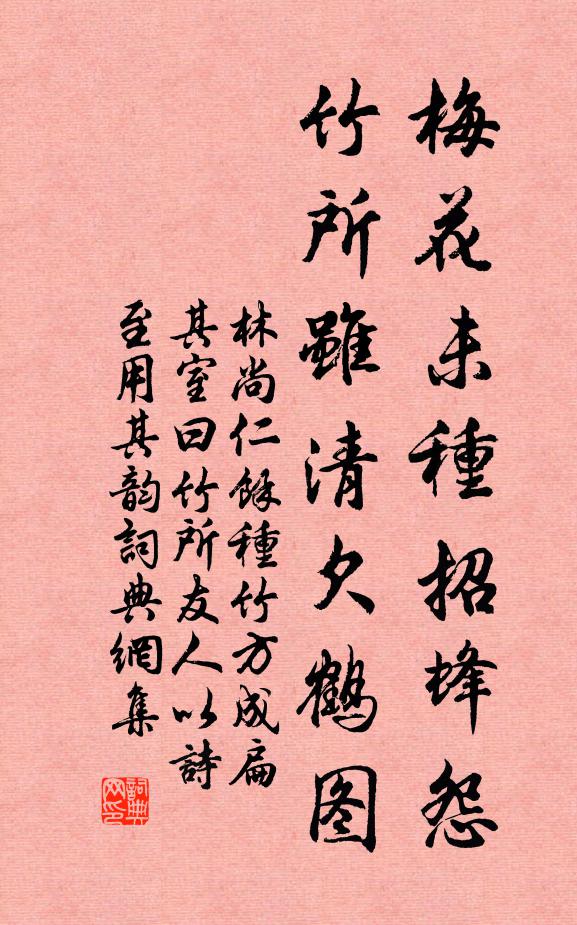 梅花未種招蜂怨
竹所雖清欠鶴图
林尚仁餘種竹方成扁
其室曰竹所友人以詩
至用其韵詞典網集
詞典网印